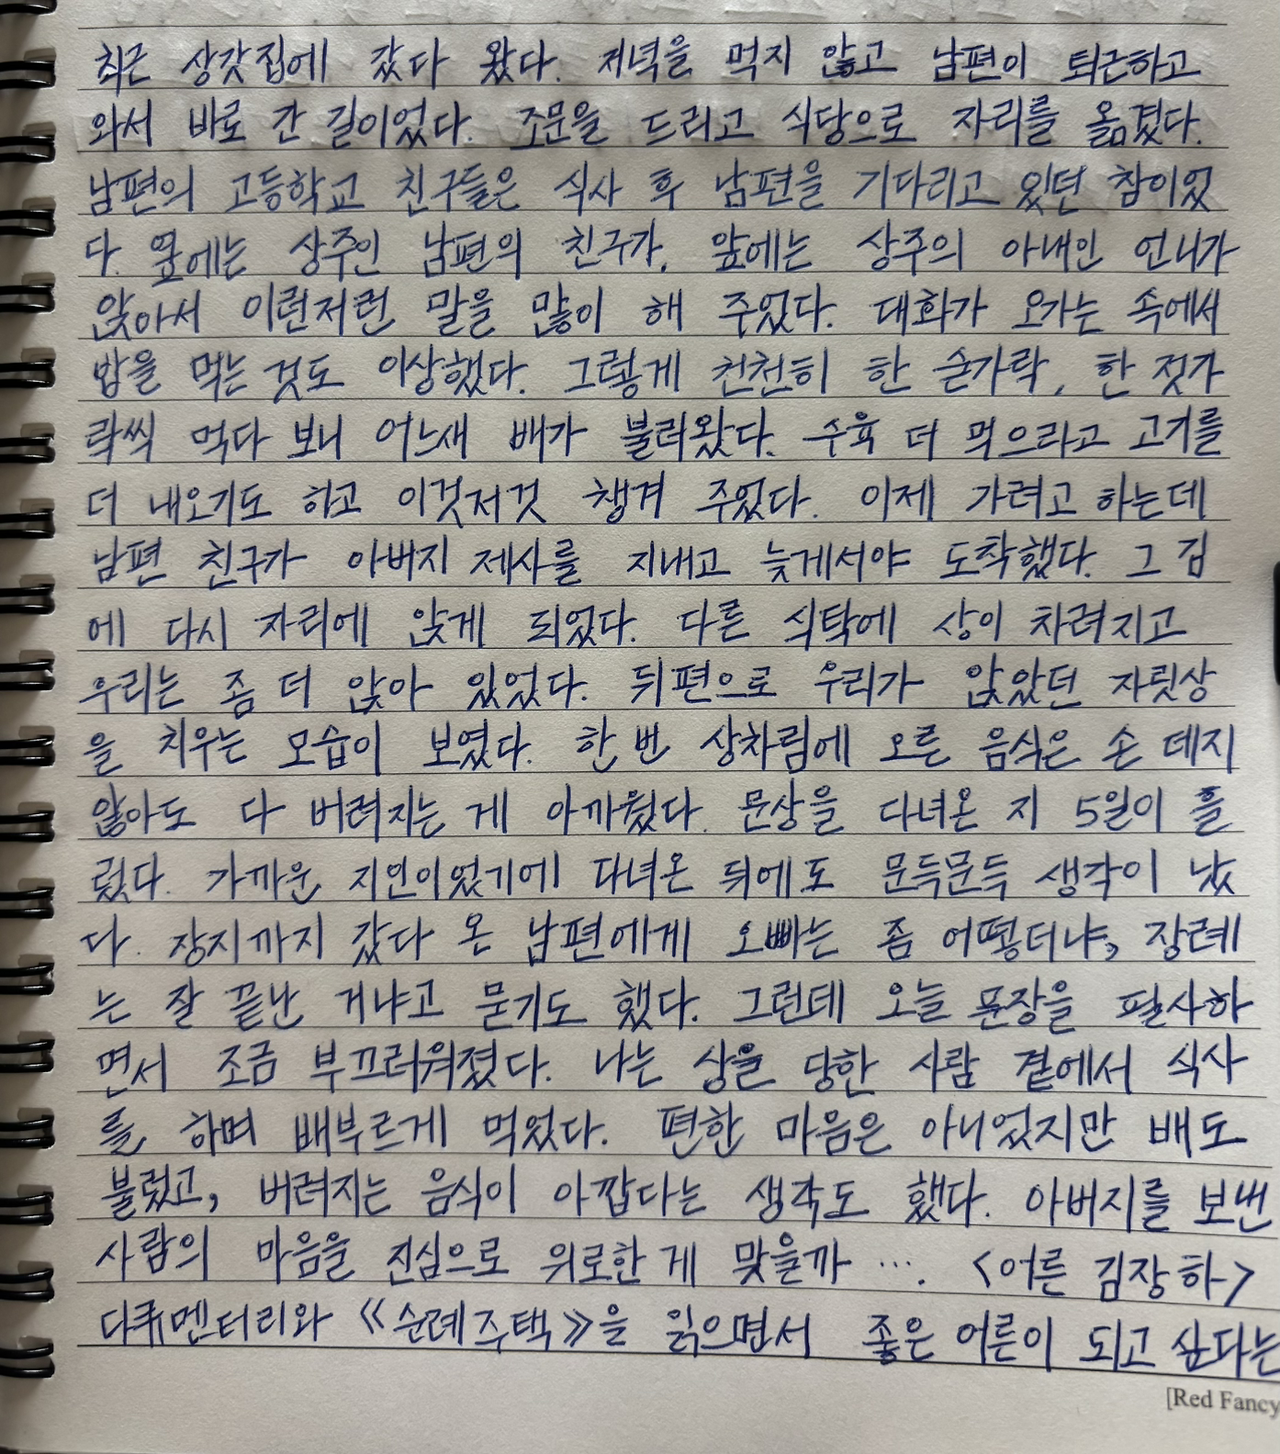 최근 상갓집에 갔다 왔다. 저녁을 먹지 않고 남편이 퇴근하고
와서 바로 간 길이었다. 조문을 드리고 식당으로 자리를 옮겼다.
남편의 고등학교 친구들은 식사 후 남편을 기다리고 있던 참이었
다. 옆에는 상주인 남편의 친구가, 앞에는 상주의 아내인 언니가
앉아서 이런저런 말을 많이 해 주었다. 대화가 오가는 속에서
밥을 먹는 것도 이상했다. 그렇게 천천히 한 숟가락, 한 젓가
락씩 먹다 보니 어느새 배가 불러왔다. 수육 더 먹으라고 고기를
더 내오기도 하고 이것저것 챙겨 주었다. 이제 가려고 하는데
남편 친구가 아버지 제사를 지내고 늦게서야 도착했다. 그 김
에 다시 자리에 앉게 되었다. 다른 식탁에 상이 차려지고
우리는 좀 더 앉아 있었다. 뒤편으로 우리가 앉았던 자릿상
을 치우는 모습이 보였다. 한 번 상차림에 오른 음식은 손 데지
않아도 다 버려지는 게 아까웠다. 문상을 다녀온 지 5일이 흘
렀다. 가까운 지인이었기에 다녀온 뒤에도 문득문득 생각이 났
다. 장지까지 갔다 온 남편에게 오빠는 좀 어떻더냐, 장례
는 잘 끝난 거냐고 묻기도 했다. 그런데 오늘 문장을 필사하
면서 조금 부끄러워졌다. 나는 상을 당한 사람 곁에서 식사
를 하며 배부르게 먹었다. 편한 마음은 아니었지만 배도
불렀고, 버려지는 음식이 아깝다는 생각도 했다. 아버지를 보낸
사람의 마음을 진심으로 위로한 게 맞을까 …. <어른 김장하>
다큐멘터리와 《순례주택》을 읽으면서 좋은 어른이 되고 싶다는
[Red Fancy